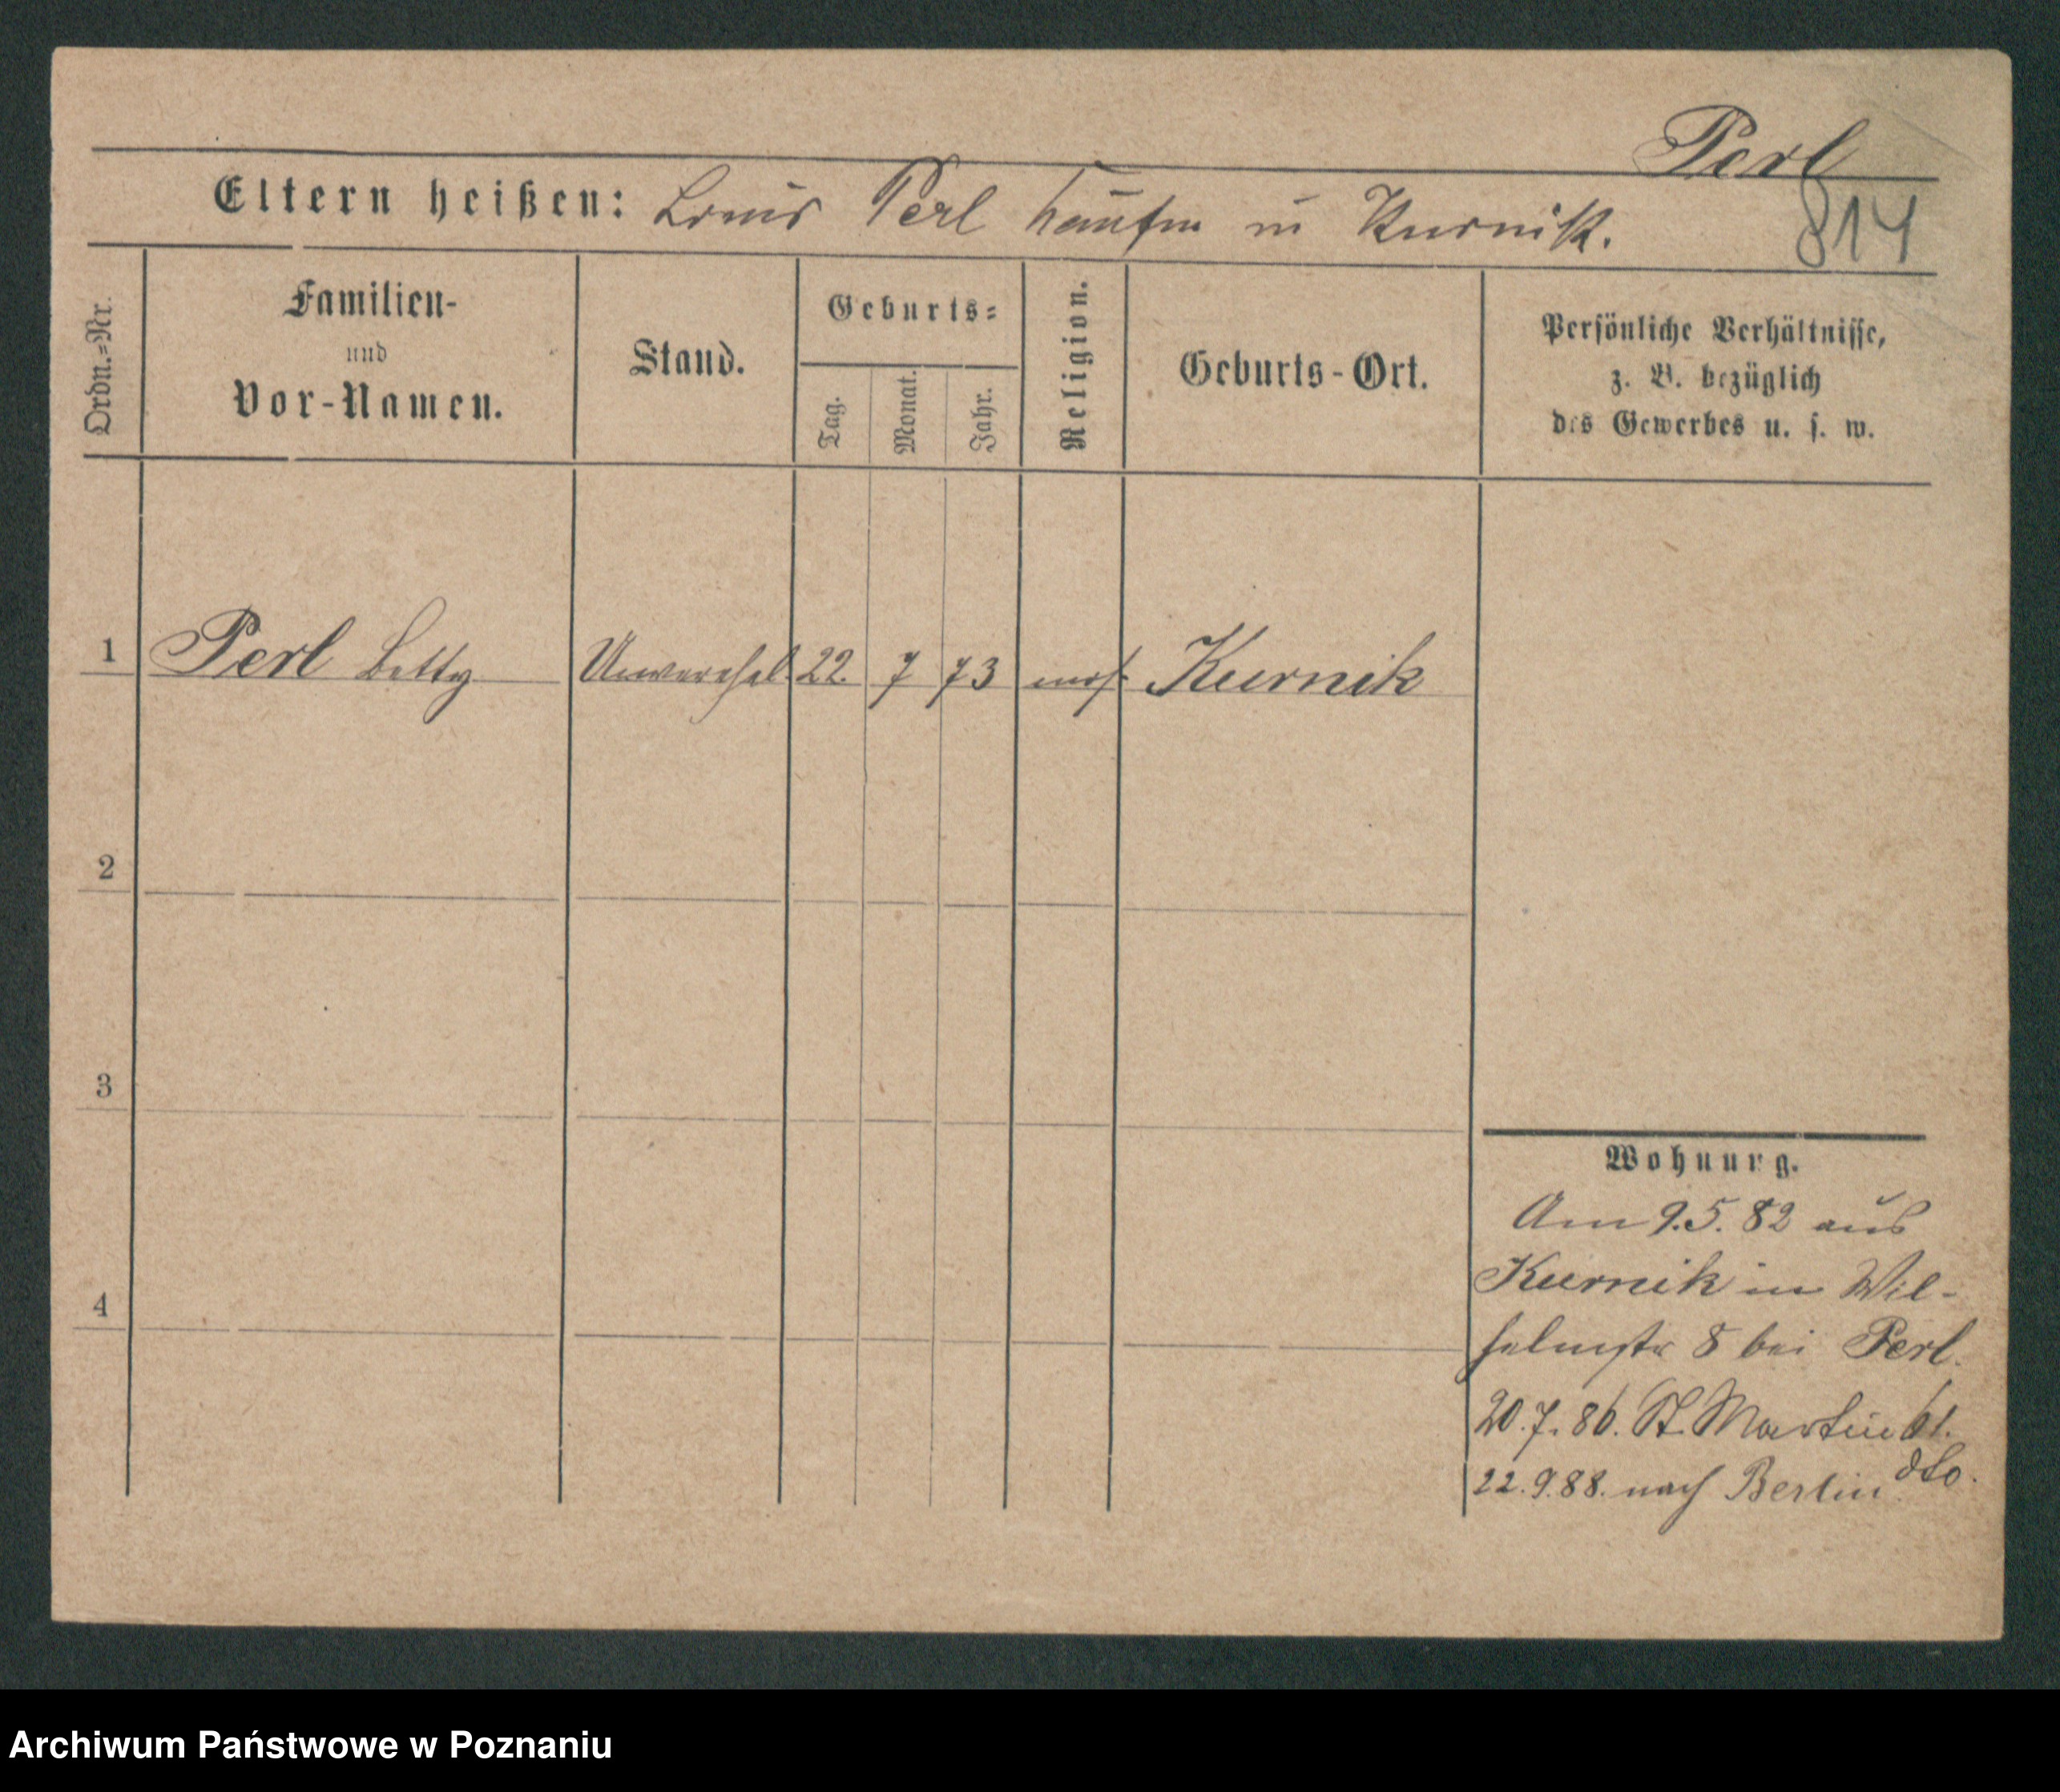 Perl
Eltern heißen: Louis Perl Kaufm in Kurnik.
814
Ordn.=Nr.
Familien-
und
Vor-Namen.
Stand.
Geburts=
Tag.
Monat.
Jahr.
Religion.
Geburts-Ort.
Persönliche Verhältnisse,
z. B. bezüglich
des Gewerbes u. s. w.
1 Perl Betty Unverehel. 22. 7 73 mos. Kurnik
2
3
4
Wohnung.
Am 9.5.82 aus
Kurnik in Wil-
helmstr 8 bei Perl.
20.7.86. St. Martin 61.
dto.
22.9.88. nach Berlin.
Archiwum Państwowe w Poznaniu